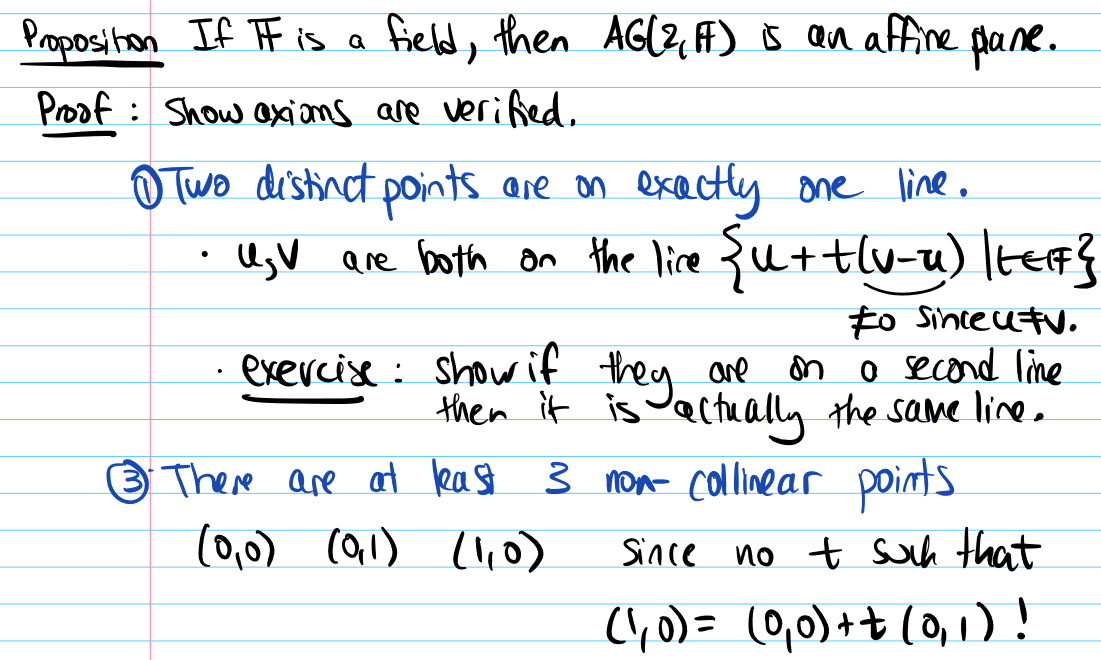 Proposition If 𝔽 is a field, then AG(2,𝔽) is an affine plane.
Proof : Show axioms are verified.
① Two distinct points are on exactly one line.
· u,v are both on the line {u + t(v-u) | t∈𝔽}
≠0 since u≠v.
· exercise : show if they are on a second line
then it is actually the same line.
③ There are at least 3 non-collinear points
(0,0) (0,1) (1,0) since no t such that
(1,0) = (0,0) + t (0,1) !